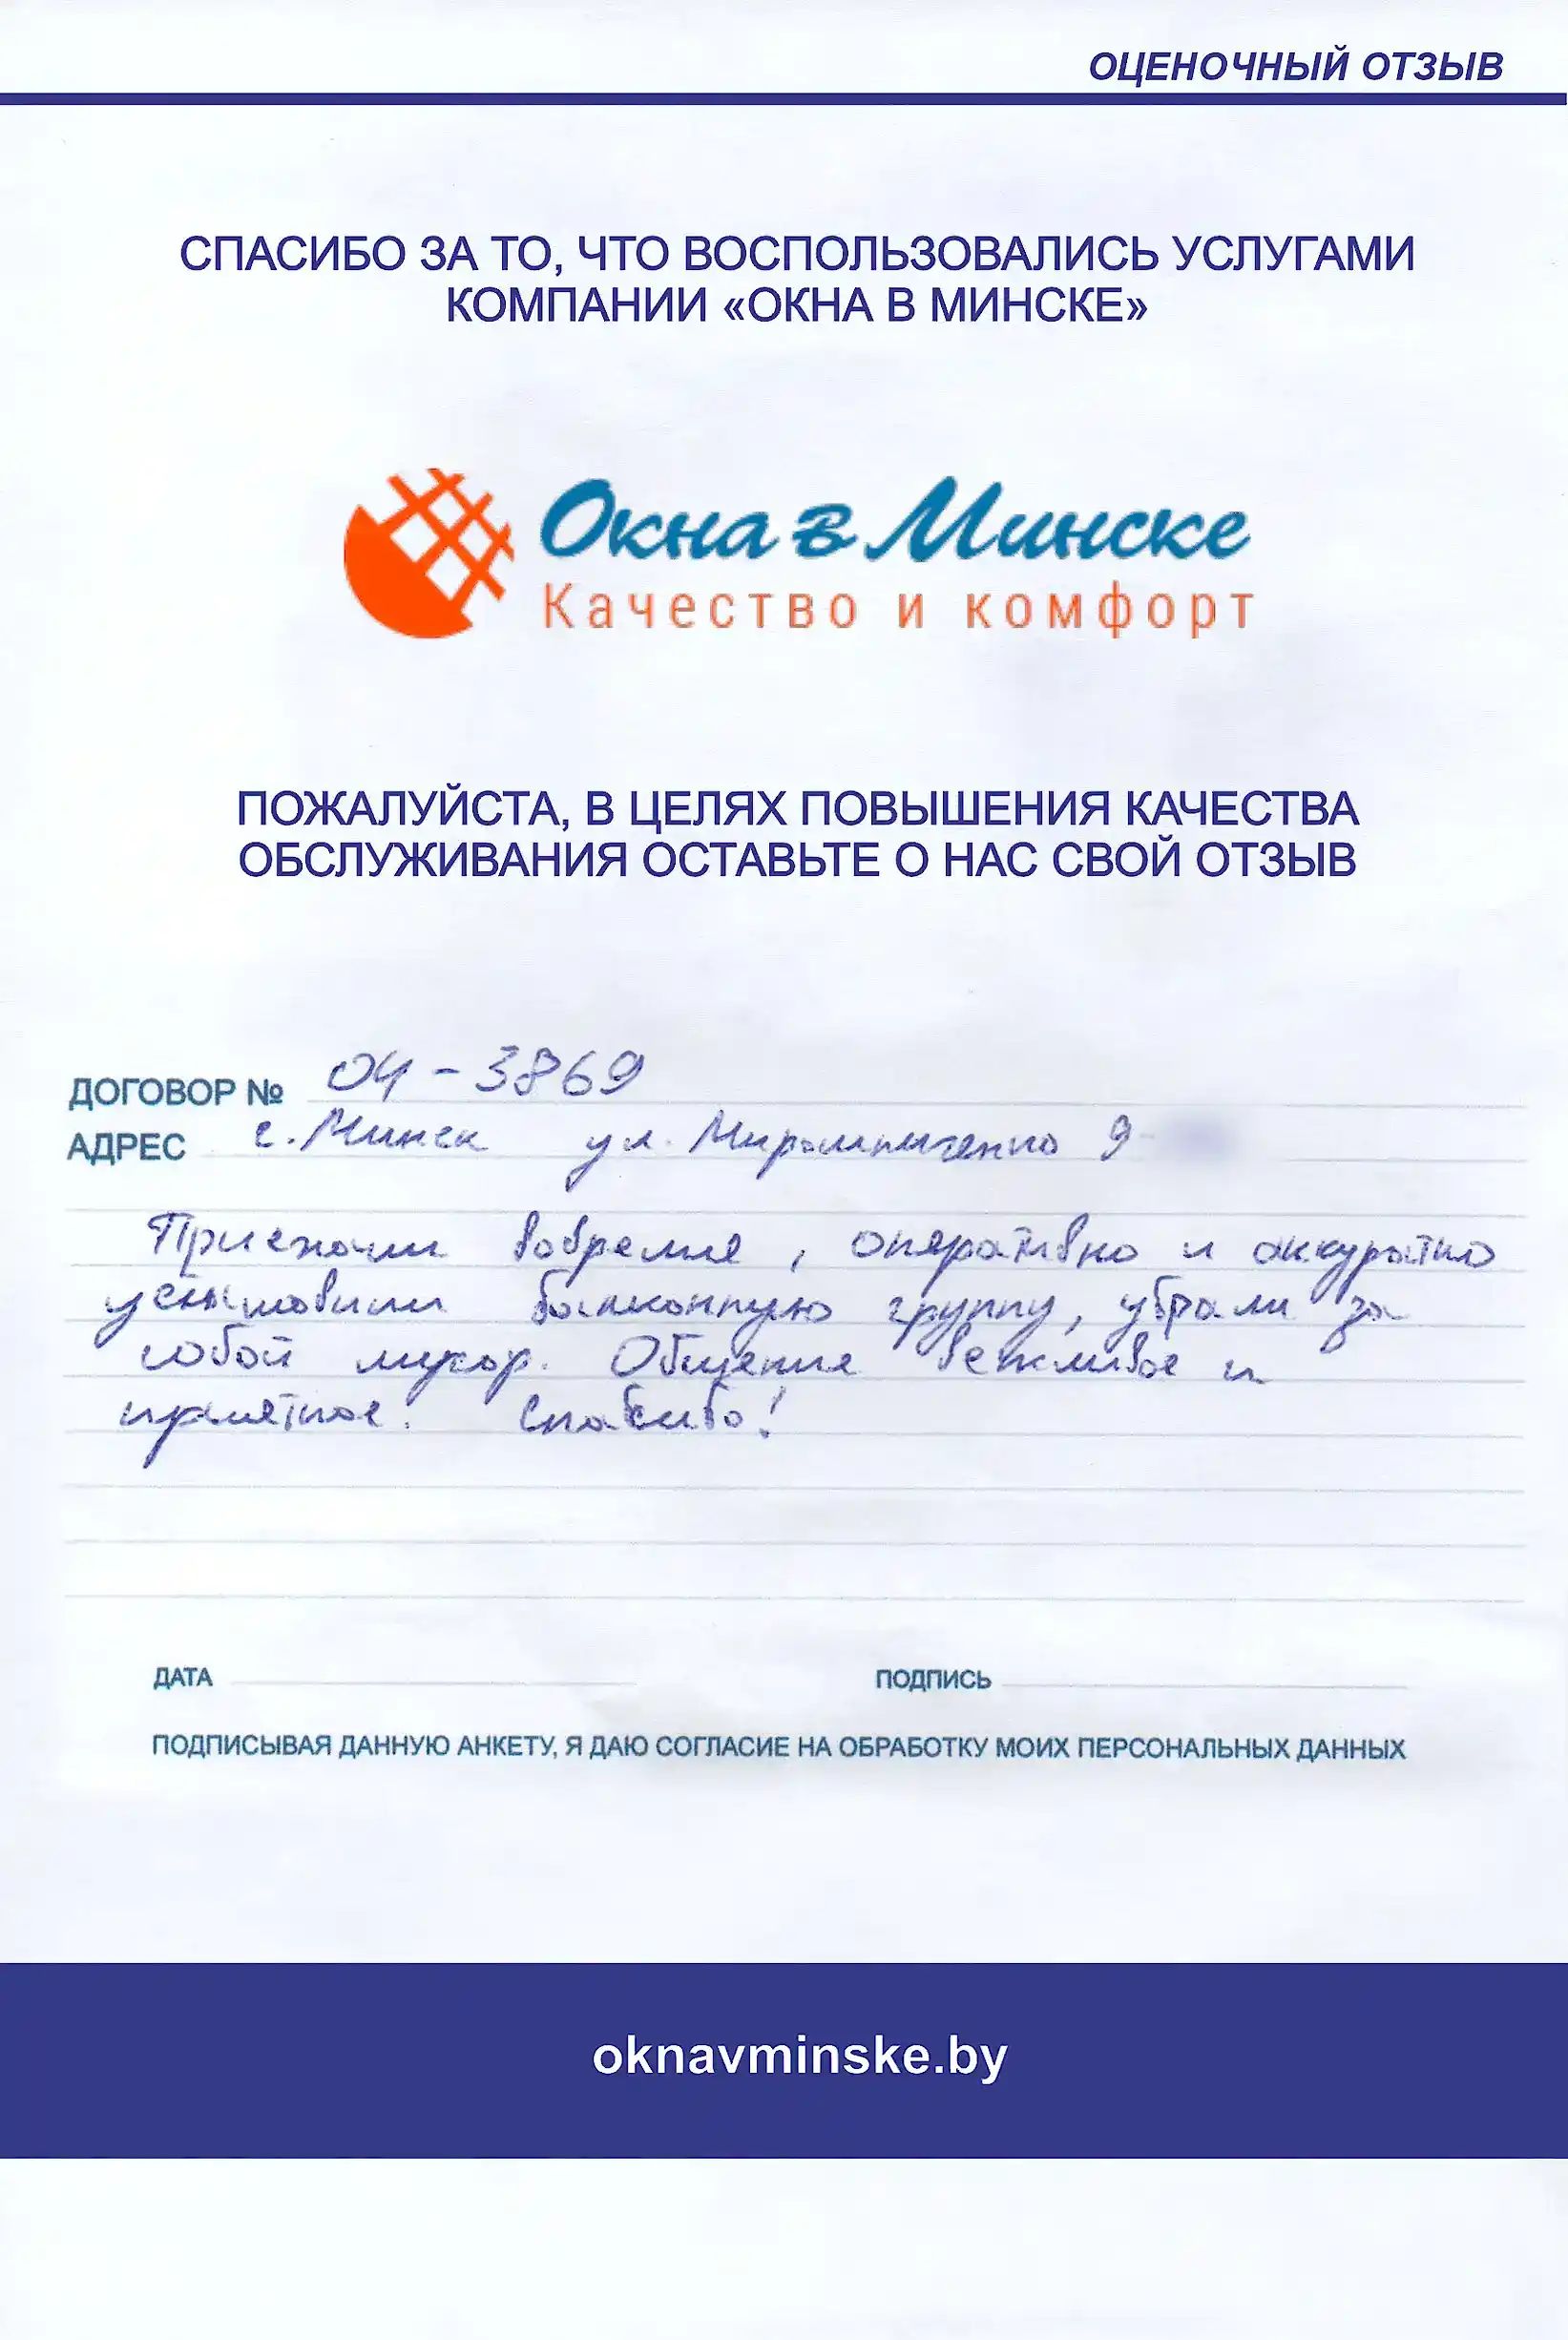 ОЦЕНОЧНЫЙ ОТЗЫВ
СПАСИБО ЗА ТО, ЧТО ВОСПОЛЬЗОВАЛИСЬ УСЛУГАМИ
КОМПАНИИ «ОКНА В МИНСКЕ»
Окна в Минске
Качество и комфорт
ПОЖАЛУЙСТА, В ЦЕЛЯХ ПОВЫШЕНИЯ КАЧЕСТВА
ОБСЛУЖИВАНИЯ ОСТАВЬТЕ О НАС СВОЙ ОТЗЫВ
ДОГОВОР № 04-3869
АДРЕС г. Минск ул. Мирошниченко 9
Приехали вовремя, оперативно и аккуратно
установили балконную группу, убрали за
собой мусор. Общение вежливое и
приятное. Спасибо!
ДАТА ПОДПИСЬ
ПОДПИСЫВАЯ ДАННУЮ АНКЕТУ, Я ДАЮ СОГЛАСИЕ НА ОБРАБОТКУ МОИХ ПЕРСОНАЛЬНЫХ ДАННЫХ
oknavminske.by